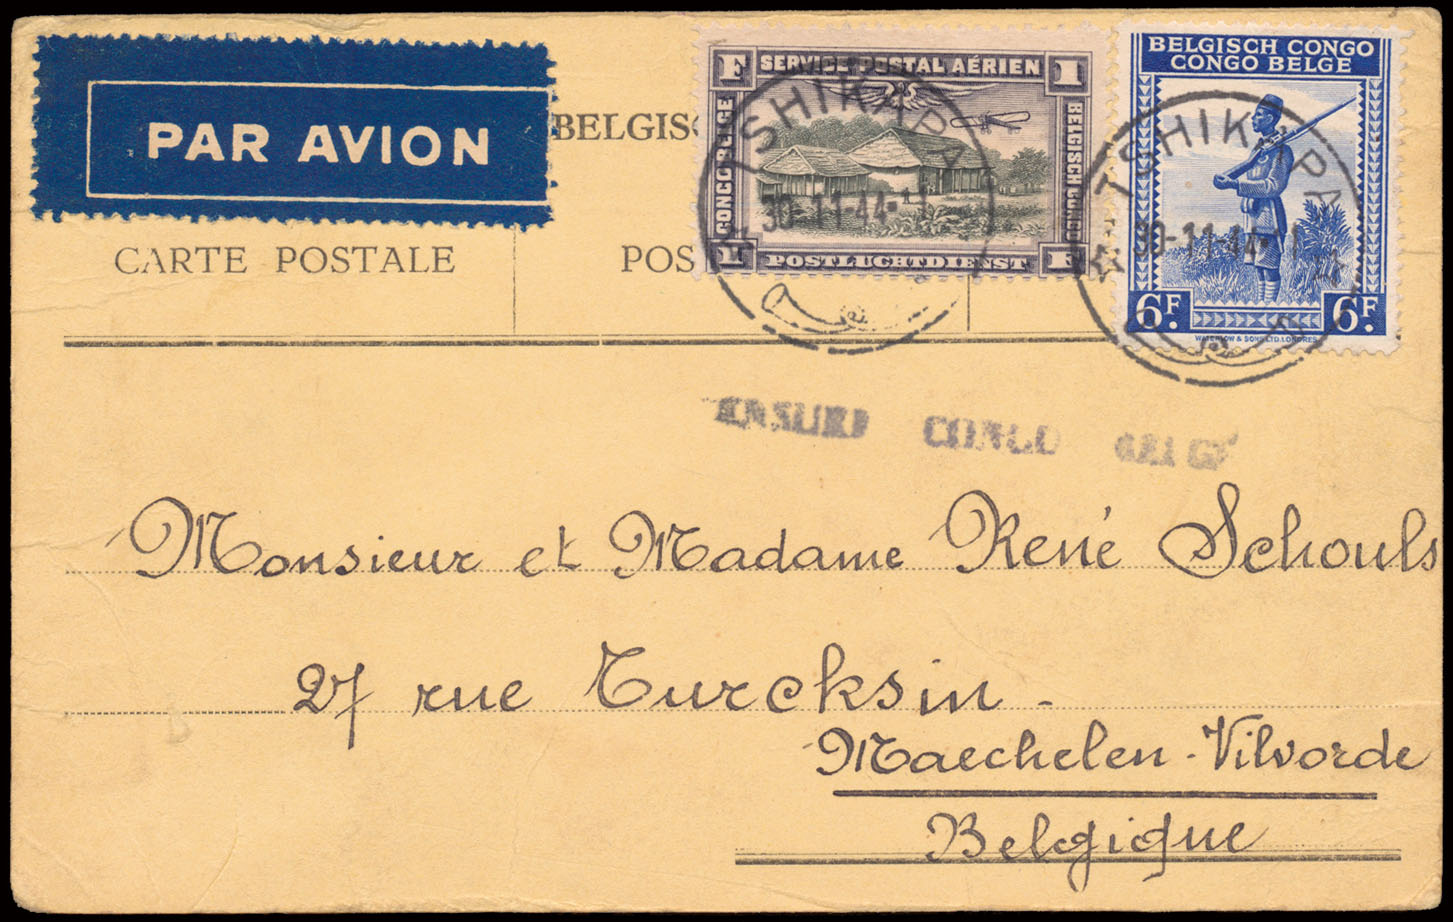 PAR AVION
BELGISC
CARTE POSTALE
POS
F SERVICE POSTAL AÉRIEN 1
CONGO BELGE
BELGISCH CONGO
1 POSTLUCHTDIENST F
TSHIKAPA
30-11-44
BELGISCH CONGO
CONGO BELGE
6F. 6F.
WATERLOW & SONS LTD. LONDRES
TSHIKAPA
30-11-44
CONGO BELGE
Monsieur et Madame René Schouls
27 rue Turcksin -
Maechelen-Vilvorde
Belgique